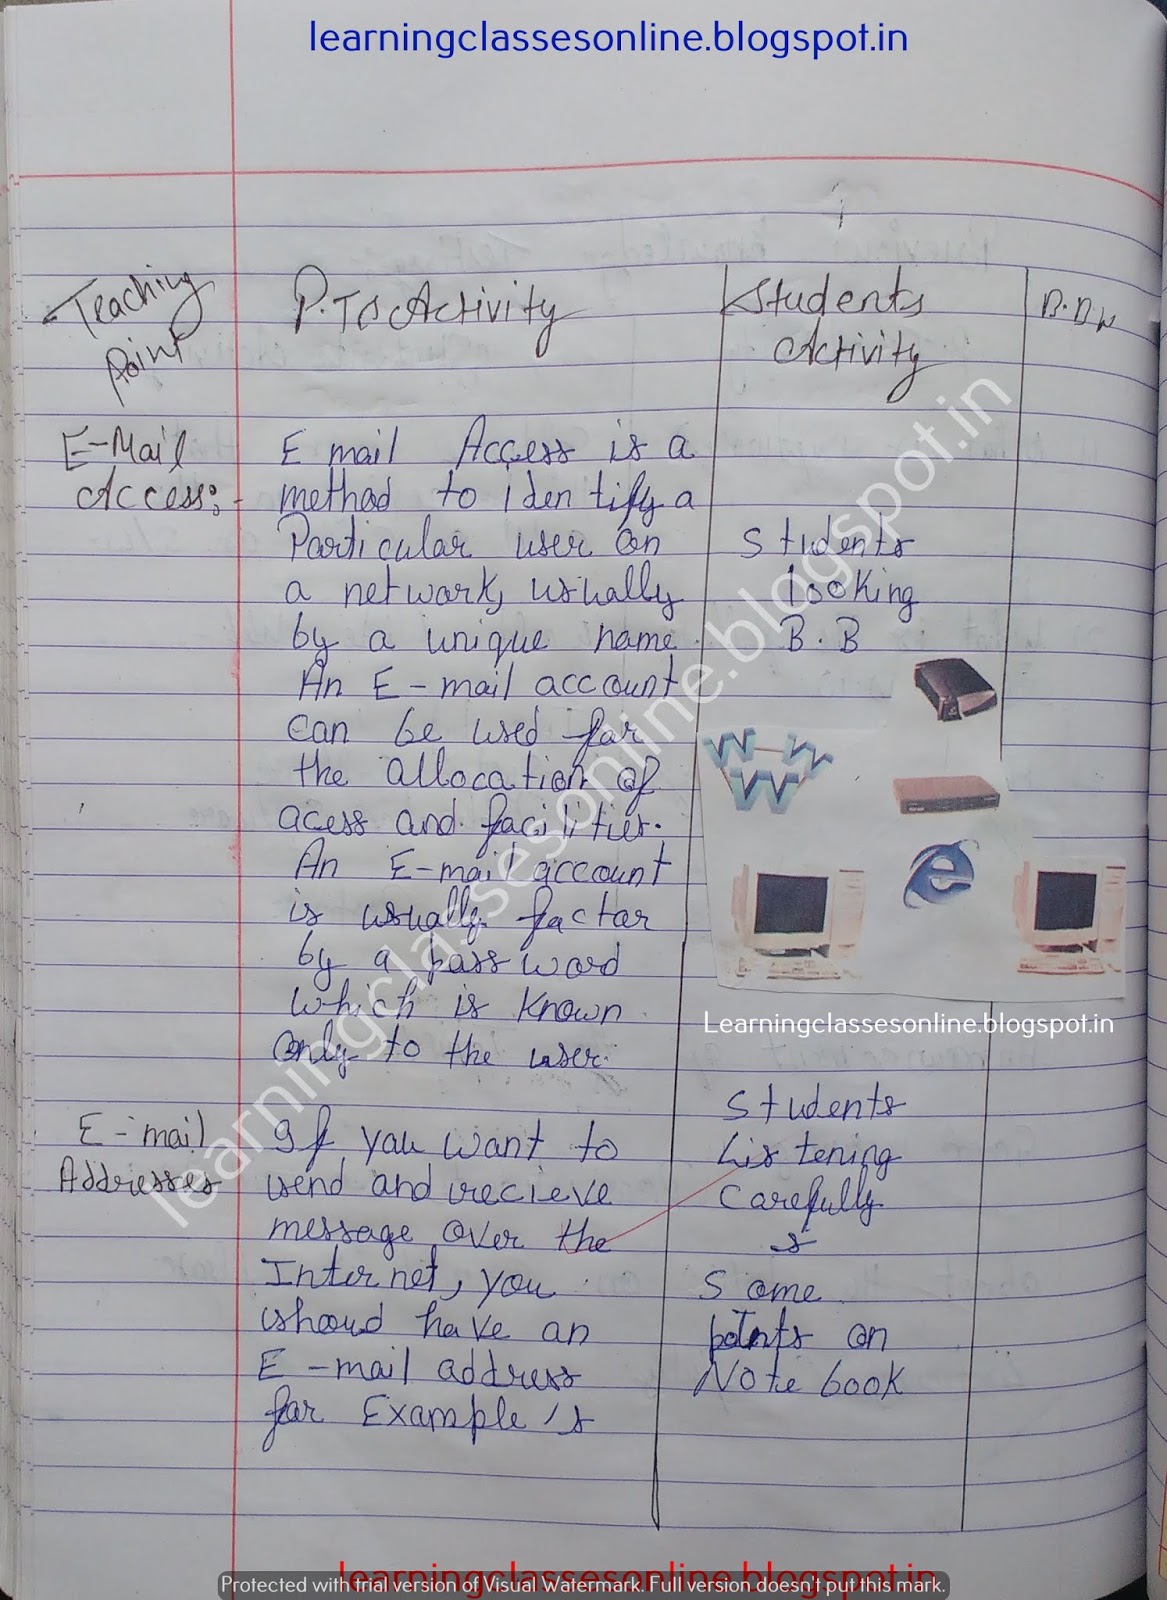 learningclassesonline.blogspot.in
Teaching Point
P.T's Activity
Students Activity
B.B.W
E-Mail
Access:-
E mail Access is a
method to identify a
Particular user on
a network, usually
by a unique name.
An E-mail account
can be used for
the allocation of
acess and facilities.
An E-mail account
is usually factor
by a password
which is known
only to the user.
Students
looking
B.B
W W W
Learningclassesonline.blogspot.in
E-mail
Addresses
If you want to
send and recieve
message over the
Internet, you
shoud have an
E-mail address
for Example's
Students
Listening
Carefully
&
Some
points on
Note book
learningclassesonline.blogspot.in
learningclassesonline.blogspot.in
Protected with trial version of Visual Watermark. Full version doesn't put this mark.